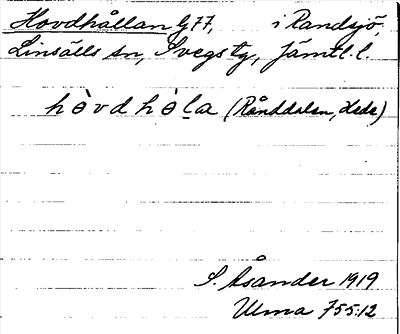 Hovdhållan G 77, i Randsjö,
Linsälls sn, Svegs tg, Jämtl. l.
hòvdhòḷa (Rånddalen, Hede)
S. Åsander 1919
Ulma 755:12